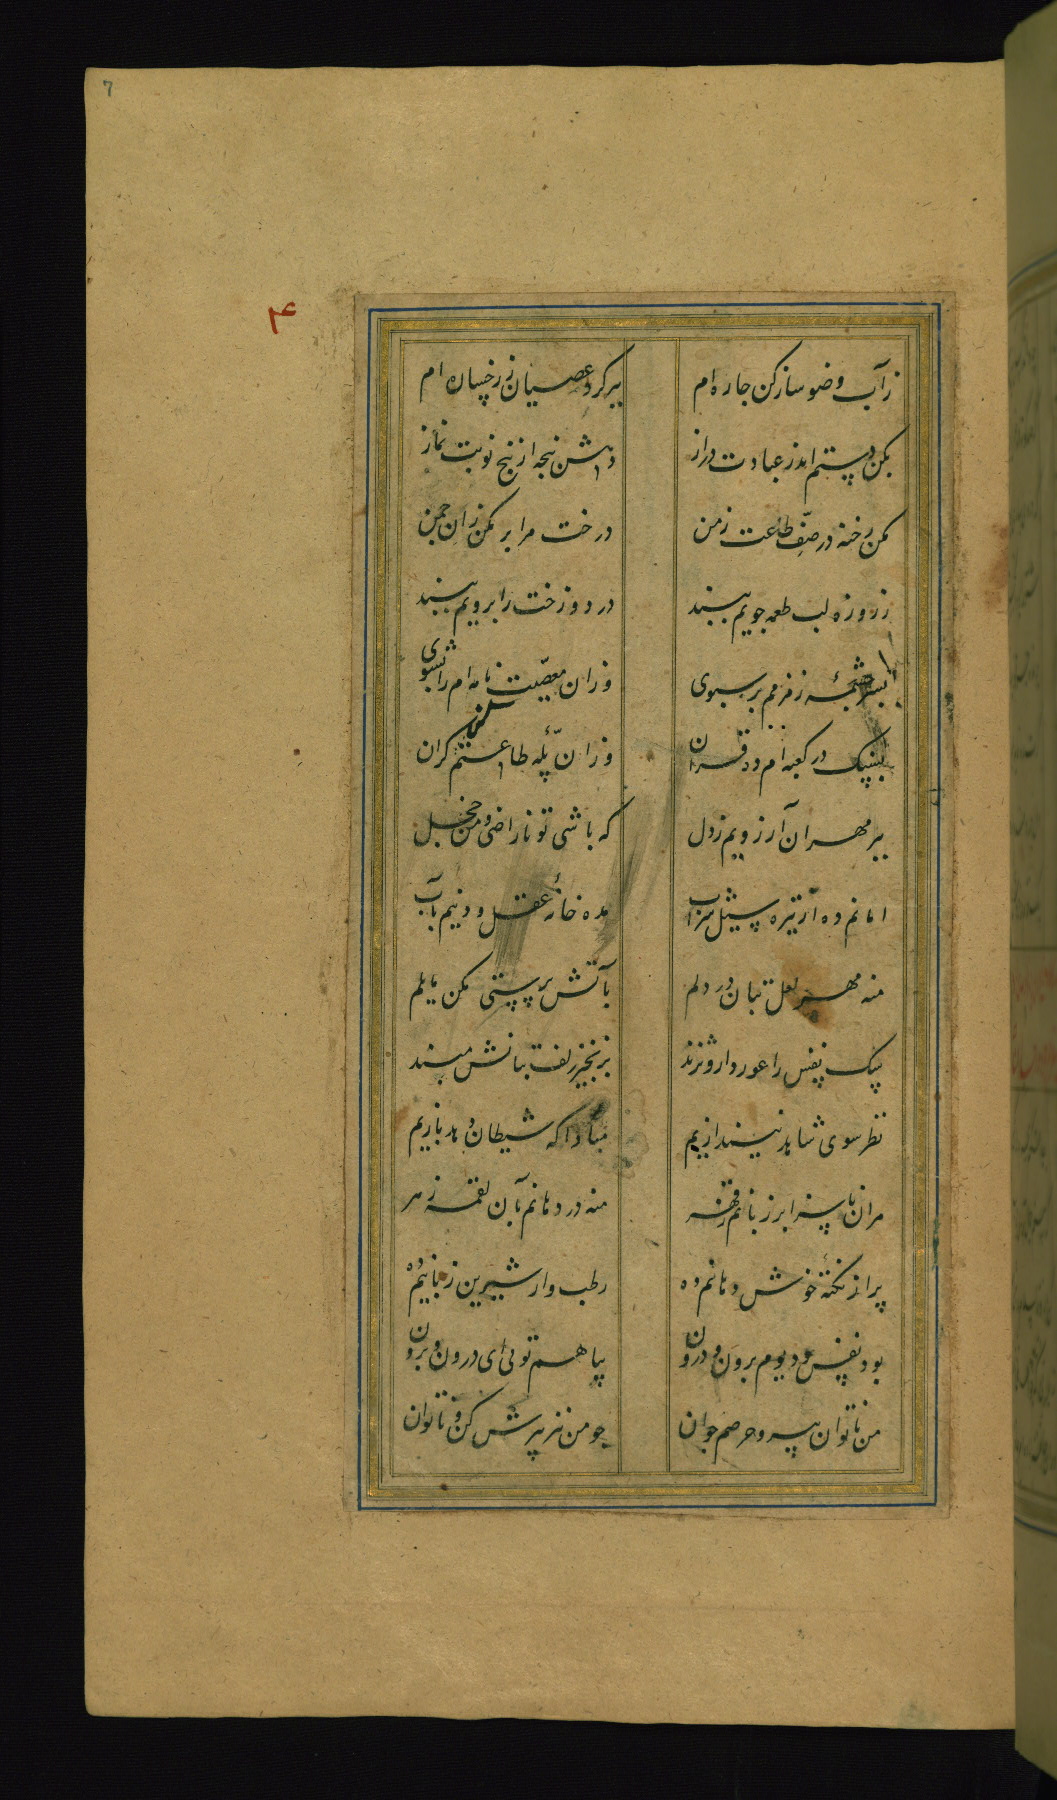 7
۴
ز آب وضو ساز کن چاره ام
ببر گرد عصیان ز رخساره ام
بکن دستم اندر عبادت دراز
دهش پنجه از پنج نوبت نماز
مکن رخنه در صف طاعت ز من
درخت مرا بر مکن زان چمن
ز روزه لب طعمه جویم ببند
در دوزخت را برویم ببند
بسرچشمه زمزمم بر سبوی
وزان معصیت نامه ام را بشوی
در کعبه ام
وزان پله طاعتم کن گران
ببر مهر آن آرزویم ز دل
که باشی تو ناراضی و من خجل
امانم ده از تیره سیل شراب
مده خانه عقل و دینم بآب
منه مهر لعل بتان در دلم
بآتش پرستی مکن مایلم
سگ نفس را عور
بزنجیر زلف بتانش مبند
نظر سوی شاهد نیندازیم
مبادا که شیطان دهد بازیم
مران ناسزا بر زبانم ز قهر
منه در دهانم بآن لقمه زهر
پر از نکته خوش دهانم ده
رطب وار شیرین زبانیم ده
بود نفس و دیوم برون و درون
پناهم توئی ای درون و برون
من ناتوان پیر و حرصم جوان
چو من نیز پیرش کن و ناتوان